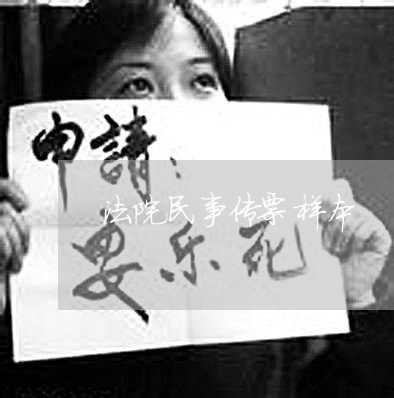 申請：
法院民事传票样本
要乐死